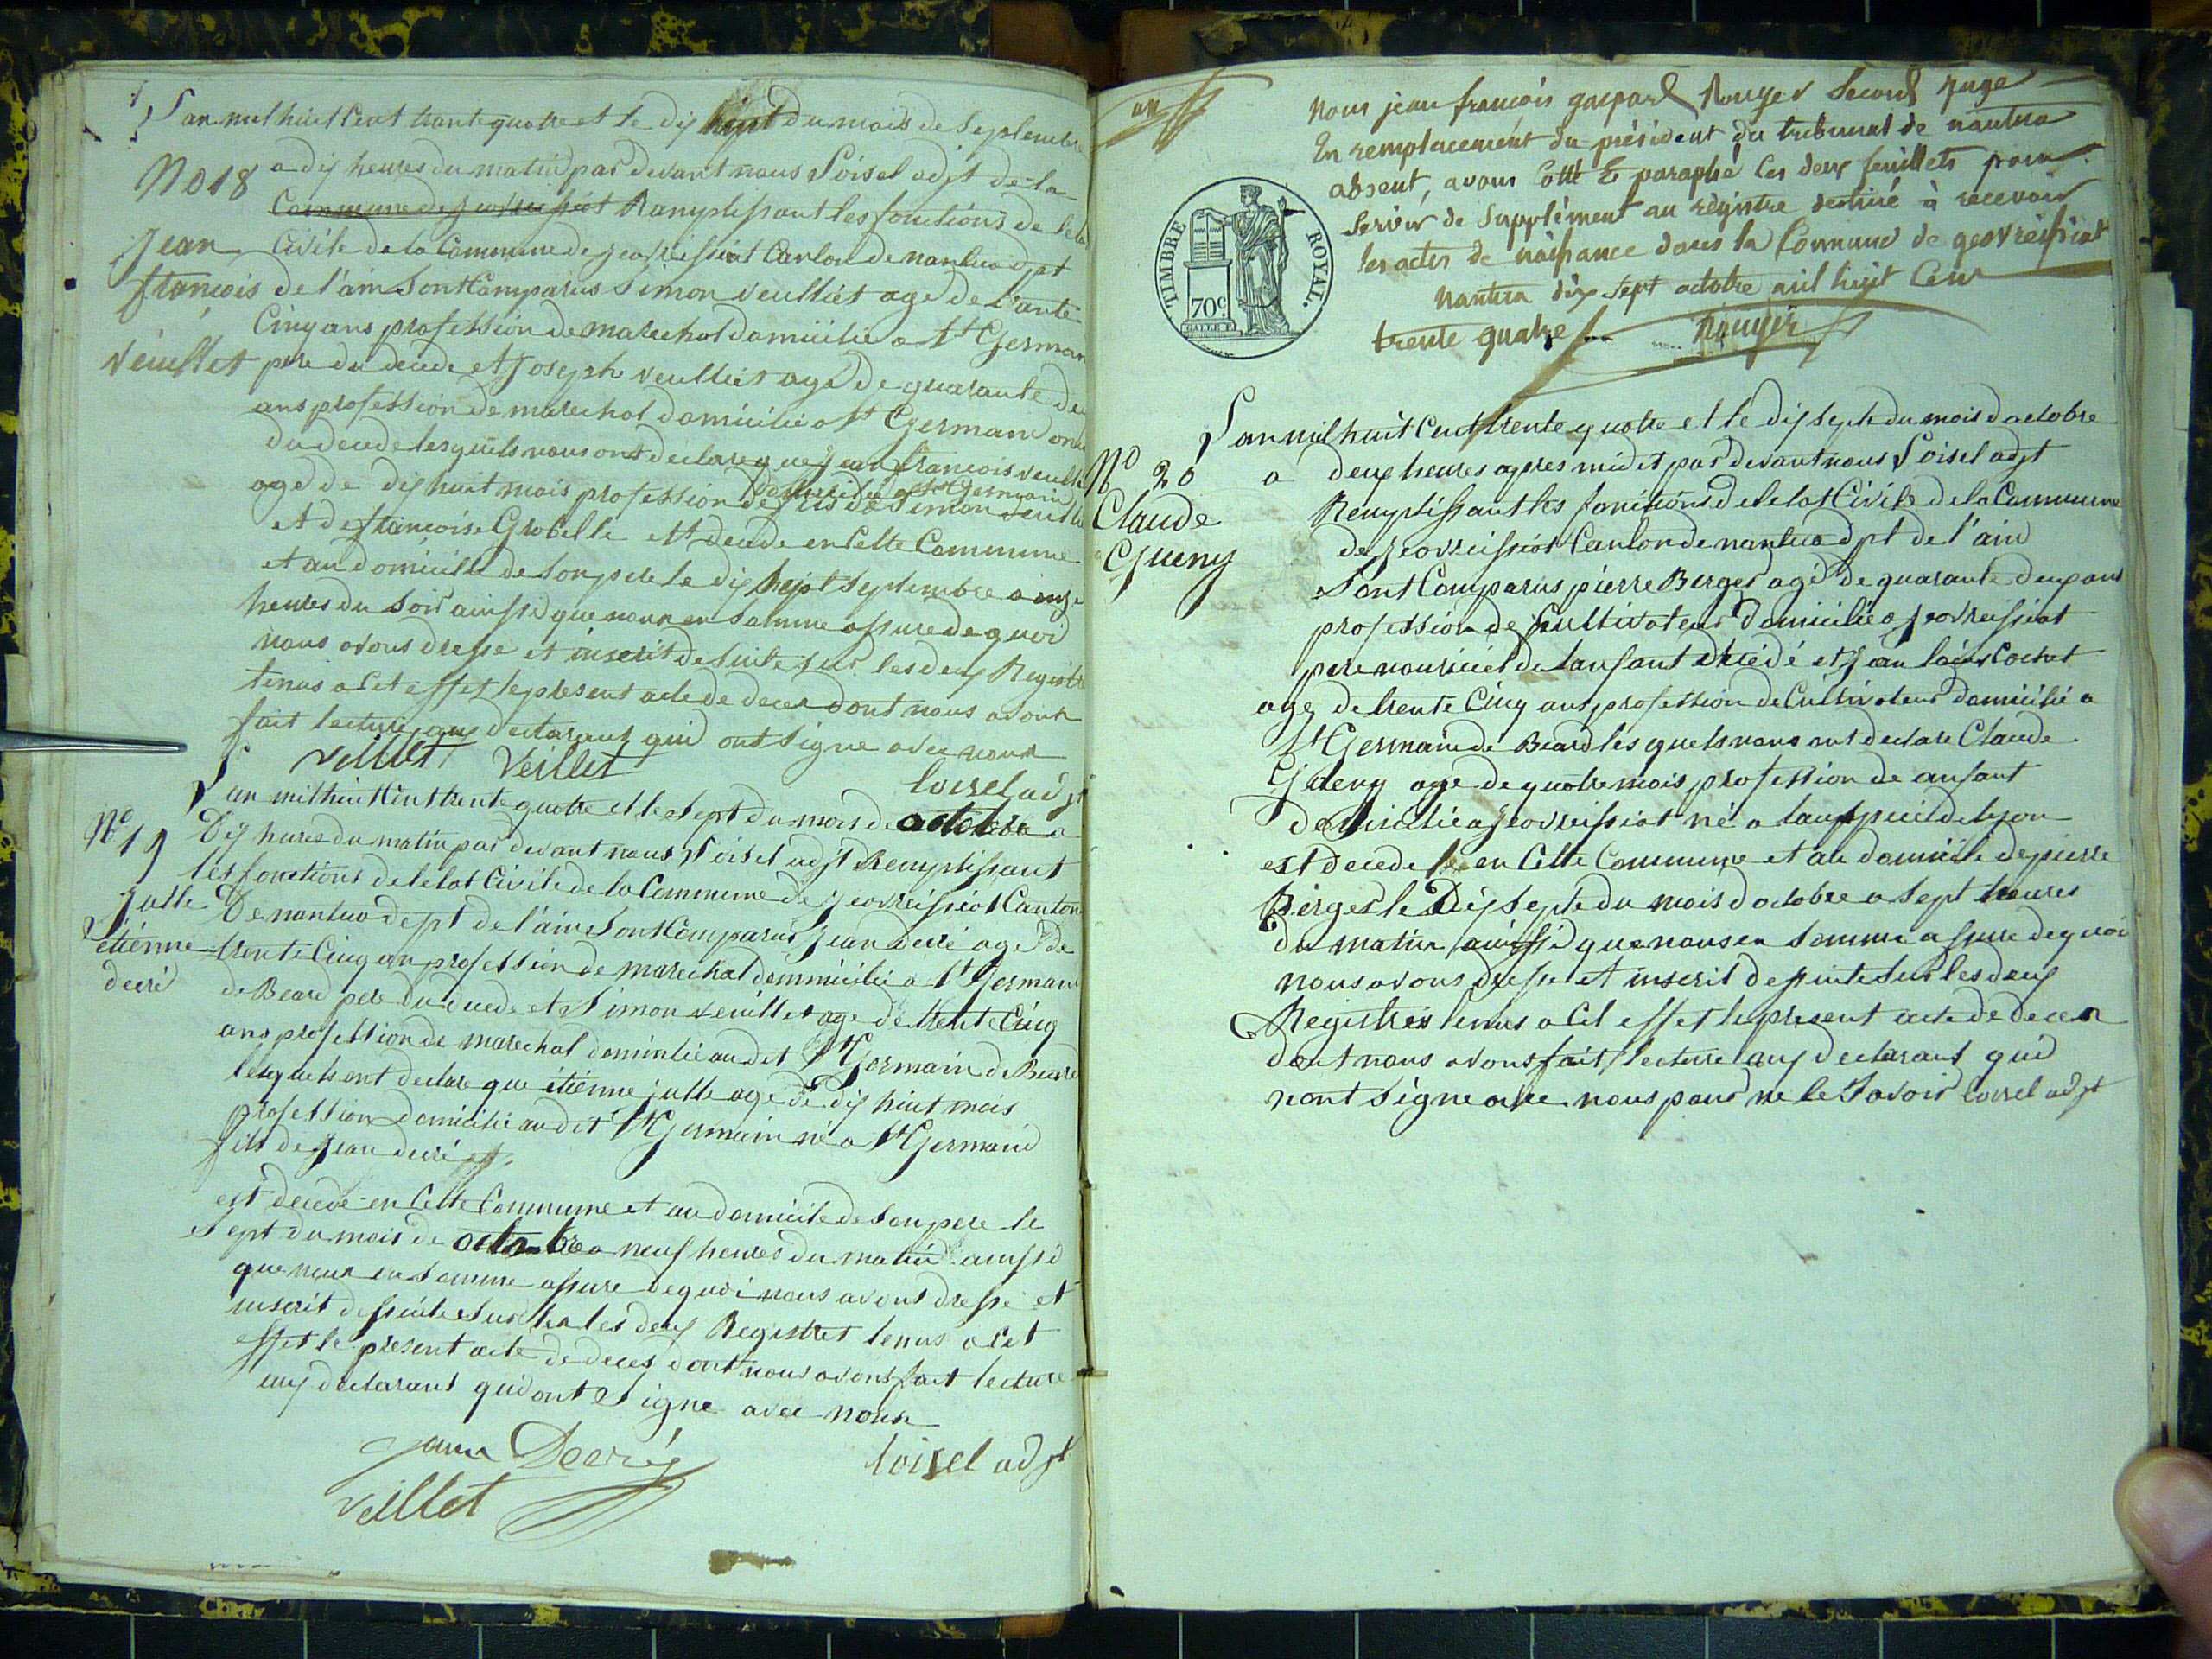 L'an mil huit cent trante quatre et le dix huit du mois de septembre
No 18
a dix heures du matin par devant nous Loisel adjt de la
Commune de geovreissiat Ramplissant les fonctions de
Jean
Civile de la Commune de geovreissiat Canton de nantua dpt
françois
de l'ain sont Comparus Simon veulliet age de trante
Cinq ans profession de marechal domicilie a St German
veuillet
pere du decede et Joseph veulliet age de quarante
ans profession de marechal domicilie a St German
du decede lesquels nous ont declare que Jean françois
domicilie a St Germain
age de dix huit mois profession de fils de Simon
et de françoise Grobelle est decede en Cette Commune
et au domicille de son pere le dix sept septembre a onze
heures du soir ainssi que nous en somme assure de quoi
nous avons dresse et inscrit de suite sur les deux Registre
tenus a Cet effet le present acte de deces dont nous avons
fait lecture aux declarant qui ont signe avec nous
veillet Veillet
loisel adjt
L'an mil huit Cent trente quatre et le sept du mois de octobre a
No 19
Dix hures du matin par devant nous Loisel adjt Remplissant
les fonctions de l'etat Civile de la Commune de geovreissiat Canton
Julle
De nantua dept de l'ain sont Comparus Jean decré age de
étiénne
trente Cinq an profession de marechal dommicilie a St German
decré
de Beard pere du decede et Simon veuillet age de trente Cinq
ans profession de marechal domicilie audit St Germain de Beard
lesquels ont declare que étiénne julle age de dix huit mois
profession domicilie audit St Germain né a St Germain
fils de Jean decré
est decede en Cette Commune et au domicile de son pere le
sept du mois de octobre a neuf heures du matin ainssi
que nous en somme assure de quoi nous avons dresse et
inscrit de suite sur les deux Registres tenus a Cet
effet le present acte de deces dont nous avons fait lecture
aux declarant qui ont signe avec nous
Decré
loisel adjt
veillet
un
nous jean francois gaspard Rouyer second juge
En remplacement du président du tribunal de nantua
absent, avons Cotté & paraphé les deux feuillets pour
servir de supplément au régistre destiné à recevoir
les actes de naissance dans la Commune de geovreissiat
nantua dix sept octobre mil huit Cent
trente quatre
Rouyer
TIMBRE ROYAL.
70c
L'an mil huit Cent trente quatre et le dix septe du mois d octobre
No 20
a deux heures apres midit par devant nous Loisel adjt
Claude
Remplissant les fonctions de l'etat Civile de la Commune
Gueny
de geovreissiat Canton de nantua dpt de l'ain
Sont Comparus pierre Berger agé de quarante deux ans
profession de Cultivateur domicilie a geovreissiat
pere nouriciet de l'anfant décédé et Jean Cochet
age de trente Cinq ans profession de Cultivateur domicilié a
St Germain de Beard les quels nous ont declare Claude
Gueny age de quatre mois profession de anfant
domicilie a geovreissiat né a de lyon
est decede en Cette Commune et au domicile de pierre
Berger le Dix septe du mois d octobre a sept heures
du matin ainssi que nous en somme assure de quoi
nous avons dresse et inscrit de suite sur les deux
Registres tenus a Cet effet le present acte de deces
dont nous avons fait lecture aux declarant qui
nont signe avec nous pour ne le savoir loisel adjt